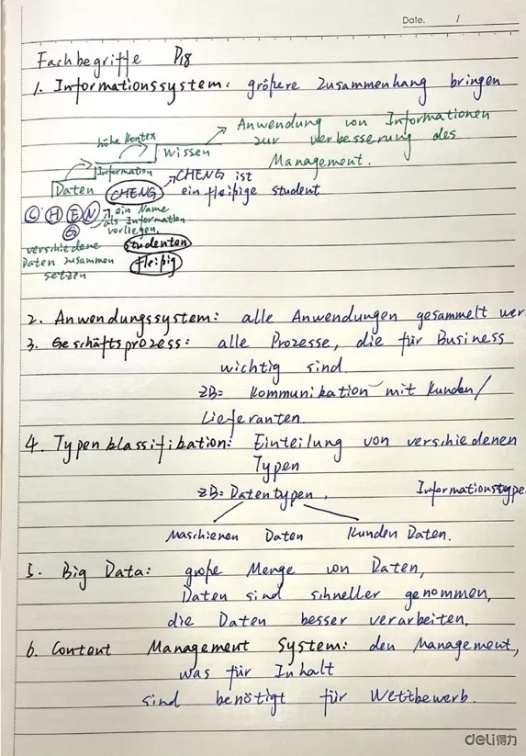 Date. /
Fachbegriffe P18
1. Informationssystem: größere Zusammenhang bringen
Anwendung von Informationen
zur verbesserung des
Management.
höhe Kontex
Wissen
Information
Daten
CHENG
CHENG ist
ein fleißige student
C H E N
G
ein Name
als Information
vorliegen.
verschiedene
Daten zusammen
setzen
studenten
fleißig
2. Anwendungssystem: alle Anwendungen gesammelt wer
3. Geschäftsprozess: alle Prozesse, die für Business
wichtig sind.
ZB: Kommunikation mit Kunden/
Lieferanten.
4. Typenklassifikation: Einteilung von verschiedenen
Typen
ZB: Datentypen, Informationstype
Maschienen Daten Kunden Daten.
5. Big Data: große Menge von Daten,
Daten sind schneller genommen,
die Daten besser verarbeiten.
6. Content Management System: den Management,
was für Inhalt
sind benötigt für Wettbewerb.
deli得力